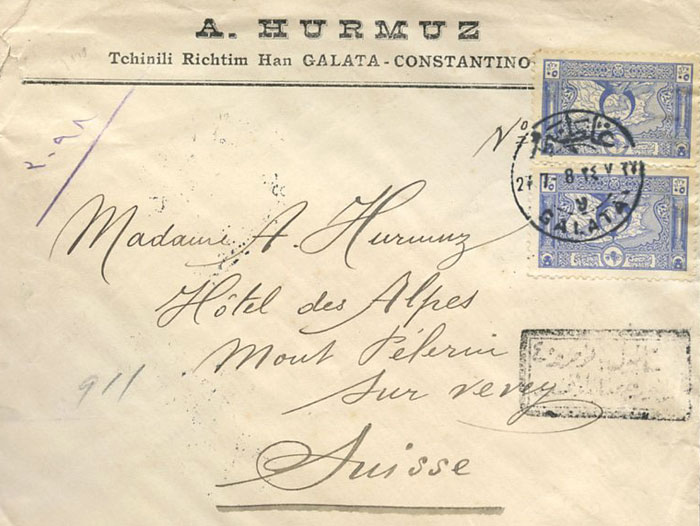 A. HURMUZ
Tchinili Richtim Han GALATA-CONSTANTINO
No
27 7-8 ٢٤ ٧ ٢٧
٧
GALATA
٢٠٩٨
Madame A. Hurmuz
Hôtel des Alpes
Mont Pélerin
sur vevey
Suisse
911